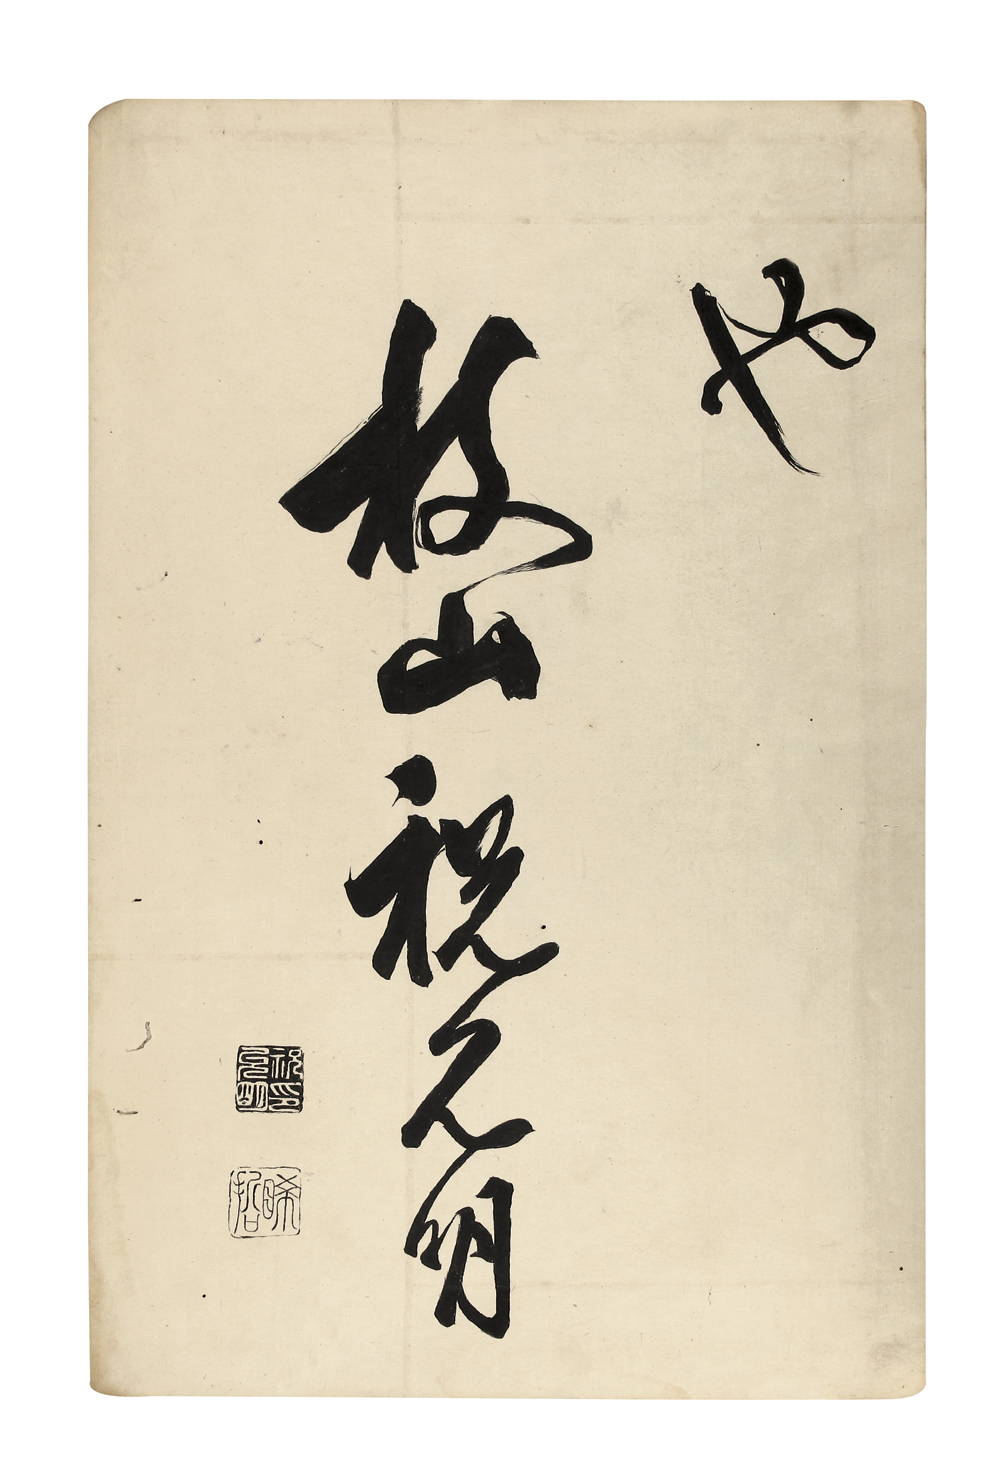 也
枝山祝允明
祝允明印
晞哲